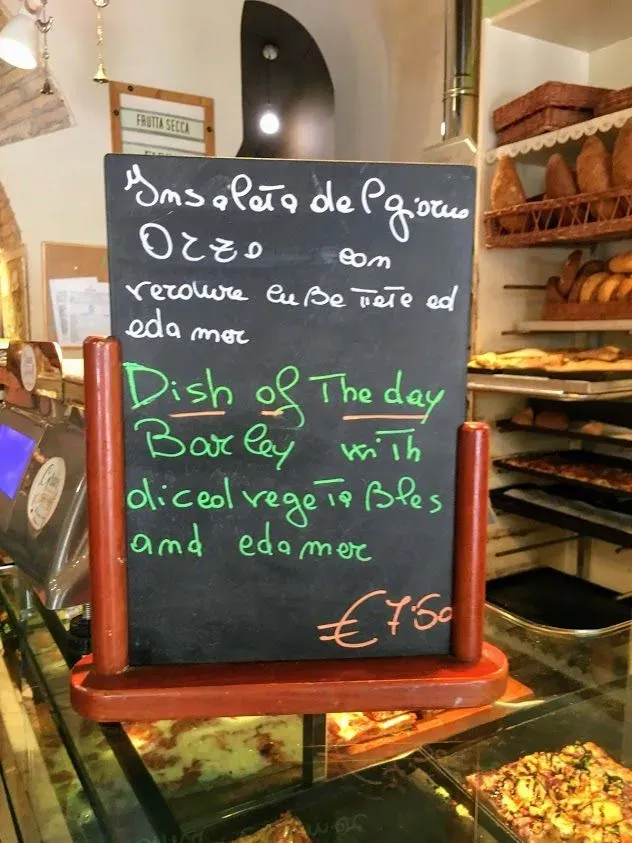 FRUTTA SECCA
Insalata del giorno
Orzo con
verdure cubettete ed
edamer
Dish of The day
Barley with
diced vegetables
and edamer
€7.50